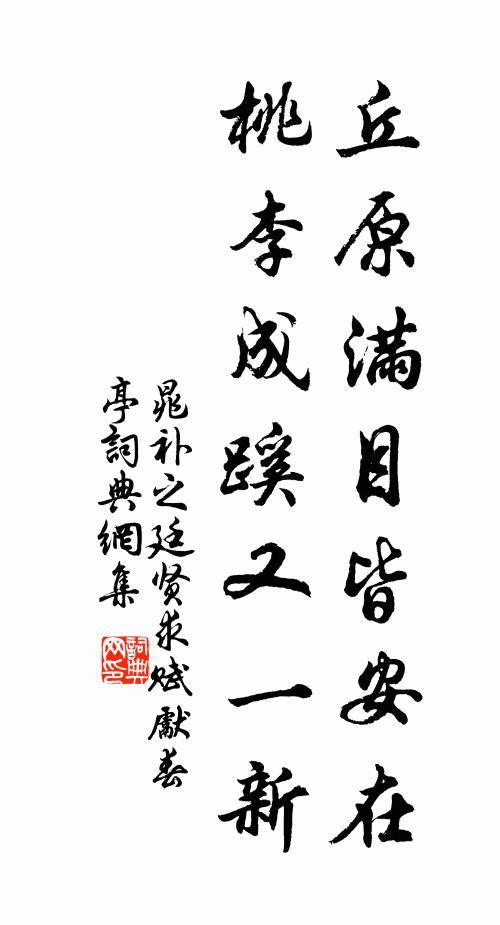 丘原满目皆安在
桃李成蹊又一新
晁补之廷贤求赋獻春
亭詞典網集
詞典
网印